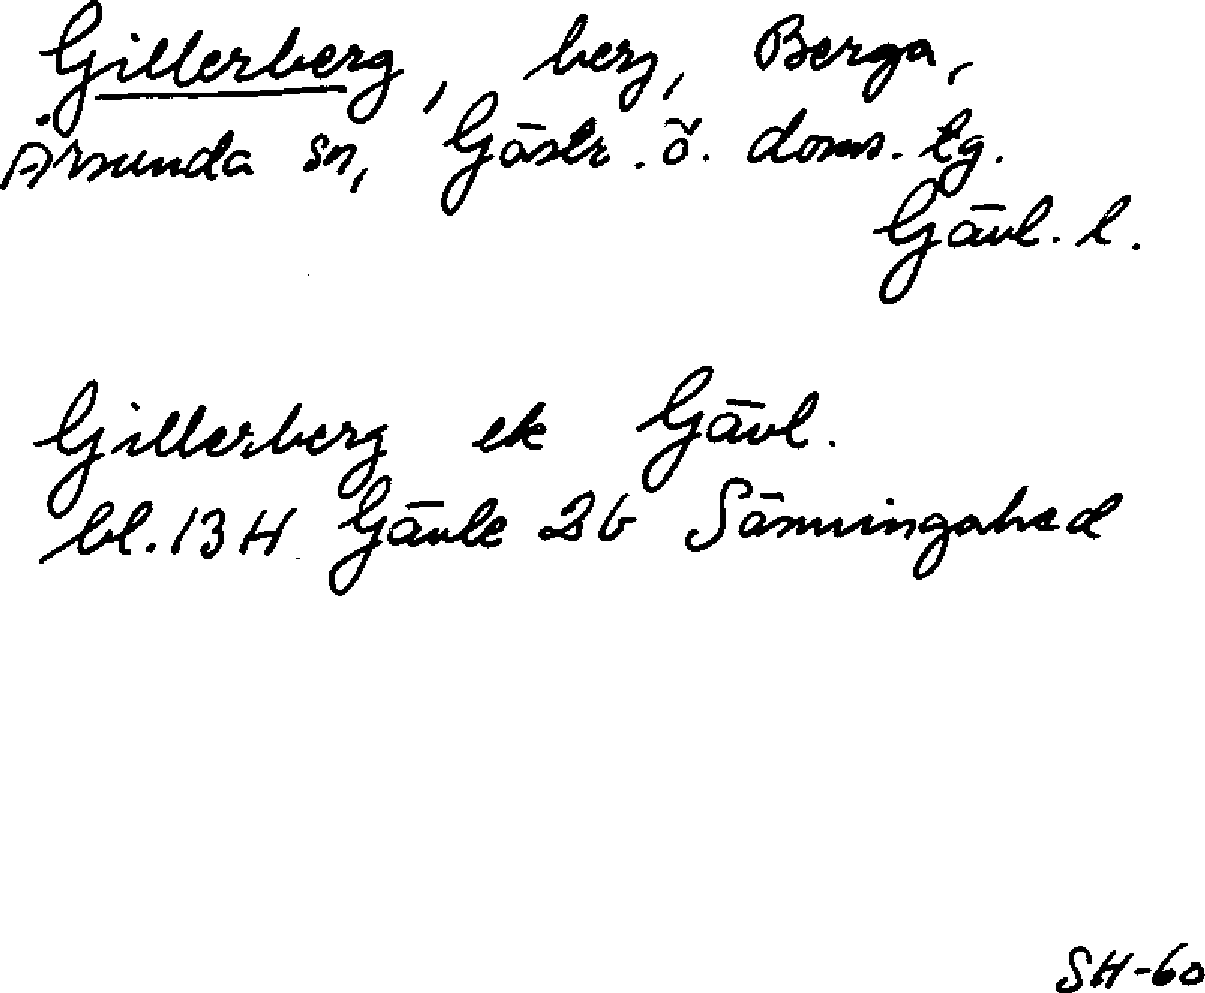 Gillerberg, berg, Berga,
Årsunda sn, Gästr. ö. doms. tg.
Gävl. l.
Gillerberg ek Gävl.
bl. 13 H Gävle 2b Sänningahed
SH-60